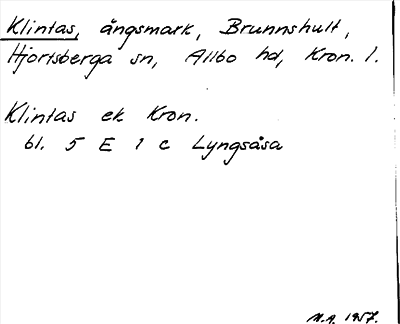 Klintas, ängsmark, Brunnshult,
Hjortsberga sn, Allbo hd, Kron. l.
Klintas ek Kron.
bl. 5 E 1 c Lyngsåsa
1957.